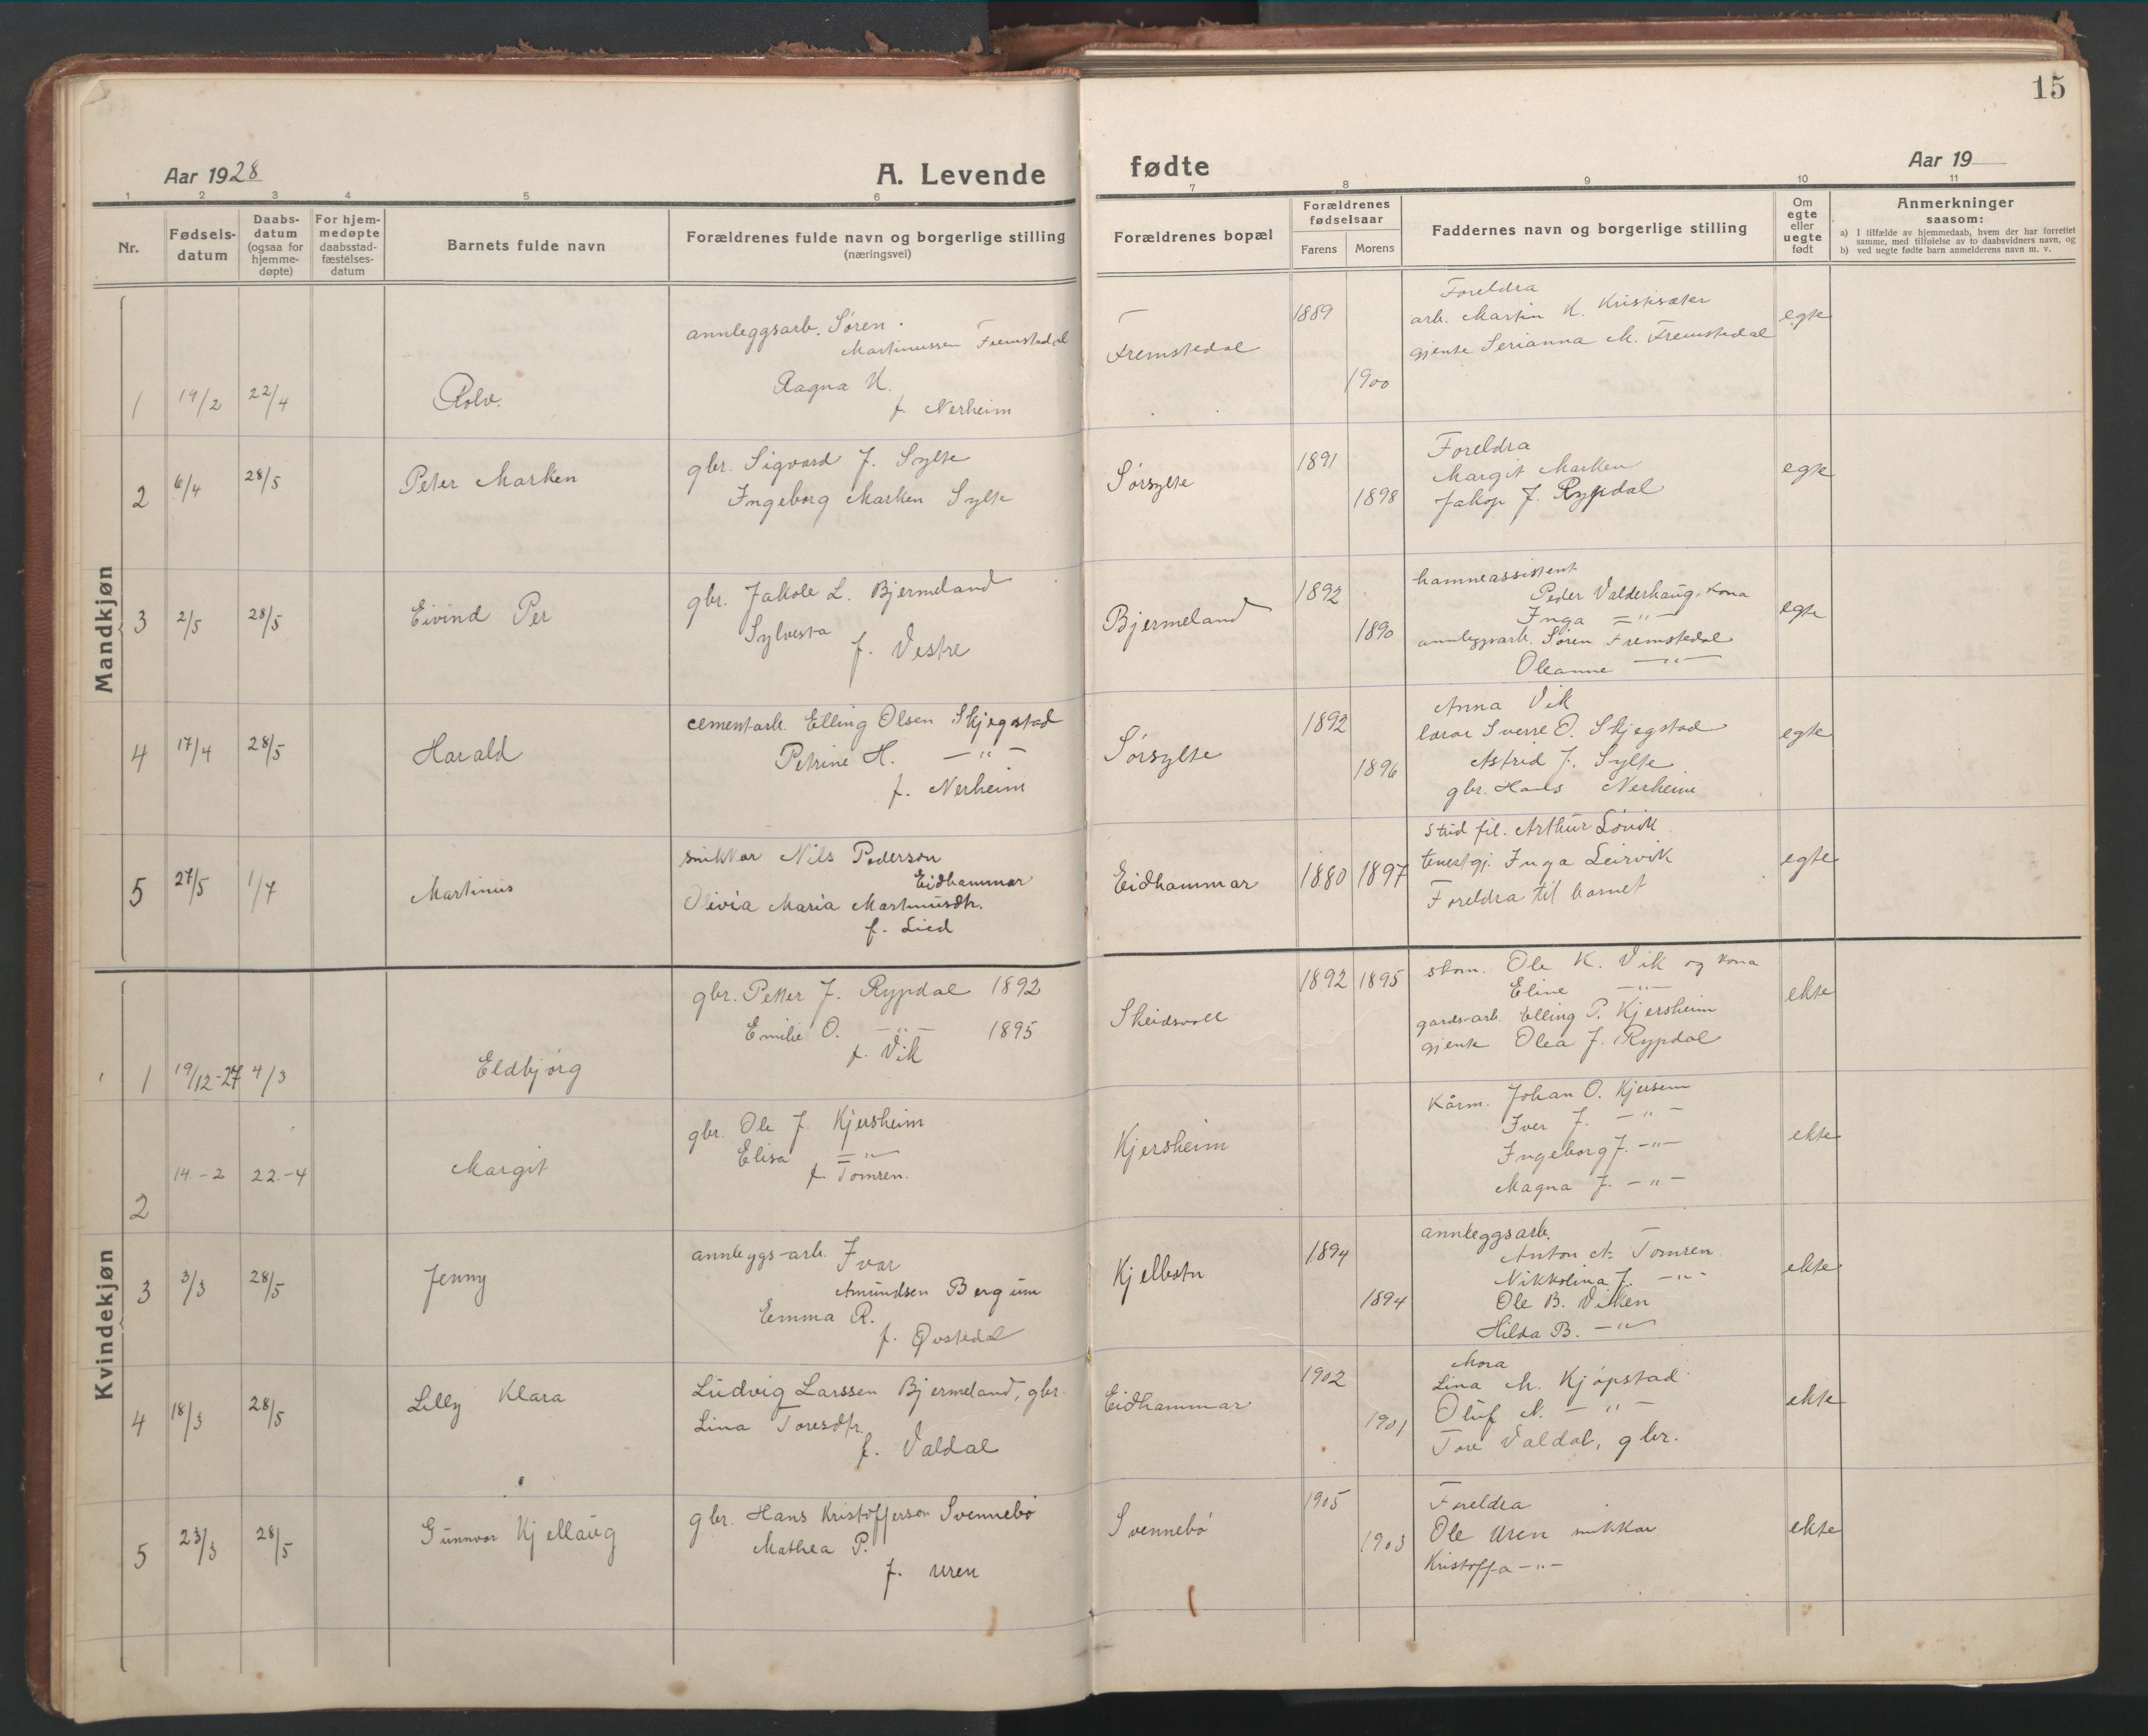 15
Aar 1928
A. Levende
fødte
Aar 19
1 2 3 4 5 6 7 8 9 10 11
Nr.
Fødsels-
datum
Daabs-
datum
(ogsaa for
hjemme-
døpte)
For hjem-
medøpte
daabsstad-
fæstelses-
datum
Barnets fulde navn
Forældrenes fulde navn og borgerlige stilling
(næringsvei)
Forældrenes bopæl
Forældrenes
fødselsaar
Farens Morens
Faddernes navn og borgerlige stilling
Om
egte
eller
uegte
født
Anmerkninger
saasom:
a) I tilfælde av hjemmedaab, hvem der har forrettet
samme, med tilføielse av to daabsvidners navn, og
b) ved uegte fødte barn anmelderens navn m. v.
Mandkjøn
1 19/2 22/4 Rolv.
annleggsarb. Søren
Martinussen Fremstedal
Ragna K.
f. Nerheim
Fremstedal 1889 1900
Foreldra
arb. Martin K. Kristisæter
gjente Serianna M. Fremstedal
egte
2 6/4 28/5 Peter Marken
gbr. Sigvard J. Sylte
Ingeborg Marken Sylte
Sørsylte 1891 1898
Foreldra
Margit Marken
Jakop J. Rypdal
egte
3 2/5 28/5 Eivind Per
gbr. Jakole L. Bjermeland
Sylvesta
f. Vestre
Bjermeland 1892 1890
hamneassistent
Peder Valderhaug, kona
Inga — " —
annleggsarb. Søren Fremstedal
Oleanne — " —
egte
4 17/4 28/5 Harald
cementarb. Elling Olsen Skjegstad
Petrine H. — " —
f. Nerheim
Sørsylte 1892 1896
Anna Vik
lærar Sverre O. Skjegstad
Astrid J. Sylte
gbr. Hans Nerheim
egte
5 27/5 1/7 Martinus
snikkar Nils Pederson
Eidhammar
Olivia Maria Martinusdtr.
f. Lied
Eidhammar 1880 1897
Stud fil. Arthur Løvik
tenestgj. Inga Leirvik
Foreldra til barnet
egte
Kvindekjøn
1 19/12-27 4/3 Eldbjørg
gbr. Petter J. Rypdal 1892
Emilie O. — " — 1895
f. Vik
Skeidsvoll 1892 1895
skom. Ole K. Vik og kona
Eline — " —
gards-arb. Elling P. Kjersheim
gjente Olea J. Rypdal
ekte
2 14.-2 22.-4 Margit
gbr. Ole J. Kjersheim
Elisa — " —
f. Tomren.
Kjersheim
Kårm. Johan O. Kjersem
Iver J. — " —
Ingeborg J. — " —
Magna J. — " —
ekte
3 3/3 28/5 Jenny
annleggs-arb. Ivar
Amundsen Bergum
Emma R.
f. Øvstedal
Kjelbotn 1894 1894
annleggsarb.
Anton A. Tomren
Nikkolina J. — " —
Ole B. Vikken
Hilda B. — " —
ekte
4 18/3 28/5 Lilly Klara
Ludvig Larssen Bjermeland, gbr.
Lina Toresdtr.
f. Valdal
Eidhammar 1902 1901
Mora
Lina M. Kjøpstad
Oluf N. — " —
Tore Valdal, gbr.
ekte
5 23/3 28/5 Gunnvor Kjellaug
gbr. Hans Kristofferson Svennebø
Mathea P.
f. Uren
Svennebø 1905 1903
Foreldra
Ole Uren snikkar
Kristoffa — " —
ekte